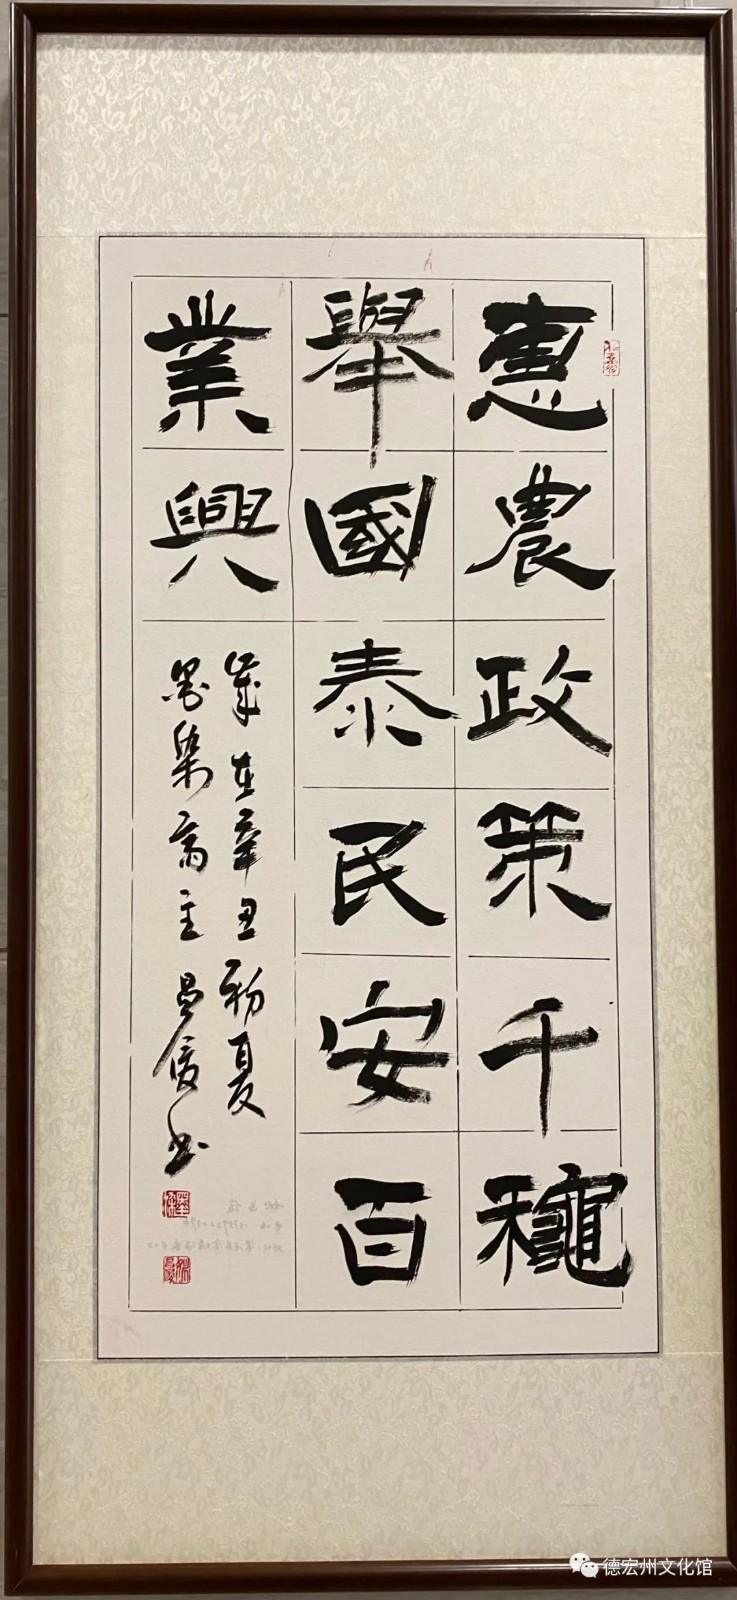 惠農政策千龝
舉國泰民安百
業興
歲在辛丑初夏
墨染齋主昌俊书
德宏州文化馆